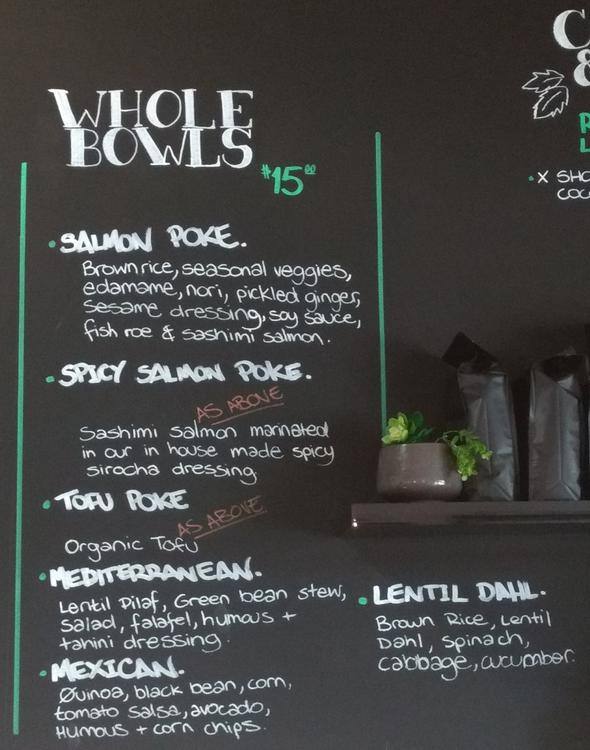 WHOLE
BOWLS
$15.00
• SALMON POKE.
Brown rice, seasonal veggies,
edamame, nori, pickled ginger,
Sesame dressing, soy sauce,
fish roe & sashimi salmon.
• SPICY SALMON POKE.
AS ABOVE
Sashimi salmon marinated
in our in house made spicy
sirocha dressing.
• TOFU POKE
AS ABOVE
Organic Tofu
• MEDITERRANEAN.
Lentil Pilaf, Green bean stew,
Salad, falafel, humous +
tahini dressing.
• MEXICAN.
Quinoa, black bean, corn,
tomato salsa, avocado,
Humous + corn chips.
• LENTIL DAHL.
Brown Rice, Lentil
Dahl, spinach,
cabbage, cucumber.
&
• X